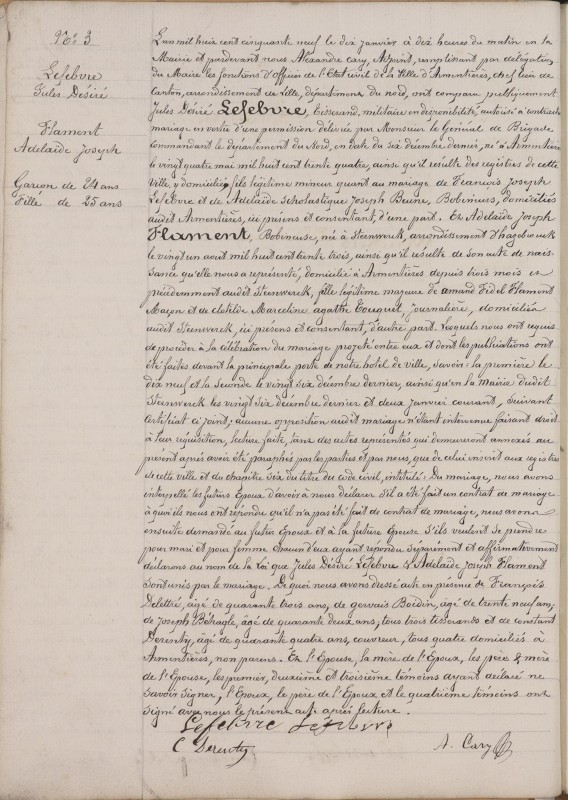 No. 3
Lefebvre
Jules Désiré
Flament
Adelaïde Joseph
Garçon de 24 ans
Fille de 25 ans
L'an mil huit cent cinquante neuf le dix janvier à dix heures du matin en la
Mairie et pardevant nous Alexandre Cary, Adjoint, remplissant par délégation
du Maire les fonctions d'officier de l'Etat civil de la Ville d'Armentières, chef lieu de
canton, arrondissement de Lille, département du nord, ont comparu publiquement
Jules Désiré Lefebvre, Tisserand, militaire en disponibilité, autorisé à contracter
mariage en vertu d'une permission délivrée par Monsieur le Général de Brigade
commandant le département du Nord, en date du six décembre dernier, né à Armentières
le vingt quatre mai mil huit cent trente quatre, ainsi qu'il résulte des registres de cette
Ville, y domicilié, fils légitime mineur quant au mariage de François Joseph
Lefebvre et de Adelaïde Scholastique Joseph Beune, Bobineurs, domiciliés
audit Armentières, ici présens et consentant, d'une part. Et Adelaïde Joseph
Flament, Bobineuse, né à Steenwerck, arrondissement d'hazebrouck
le vingt un août mil huit cent trente trois, ainsi qu'il résulte de son acte de nais-
sance qu'elle nous a représenté, domicilié à Armentières depuis trois mois et
précédemment audit Steenwerck, fille légitime majeure de amand Fidel Flament
Maçon et de clotilde Marceline agathe Touquet, journalière, domiciliés
audit Steenwerck, ici présens et consentant, d'autre part. Lesquels nous ont requis
de procéder à la célébration du mariage projeté entre eux et dont les publications ont
été faites devant la principale porte de notre hôtel de ville, savoir: la première le
dix neuf et la seconde le vingt six décembre dernier, ainsi qu'en la Mairie dudit
Steenwerck les vingt six décembre dernier et deux janvier courant, suivant
certificat ci joint; aucune opposition audit mariage n'étant intervenue faisant droit
à leur réquisition, lecture faite, tant des actes représentés qui demeuront annexés au
présent après avoir été paraphés par les parties et par nous, que de celui inscrit aux registres
de cette ville et du chapitre six du titre du code civil, intitulé: Du mariage, nous avons
interpellé les futurs Epoux d'avoir à nous déclarer s'il a été fait un contrat de mariage
à quoi ils nous ont répondu qu'il n'a pas été fait de contrat de mariage, nous avons
ensuite demandé au futur Epoux et à la future Epouse s'ils veulent se prendre
pour mari et pour femme chacun d'eux ayant répondu séparément et affirmativement
déclarons au nom de la loi que Jules Désiré Lefebvre & Adelaïde Joseph Flament
sont unis par le mariage. De quoi nous avons dressé acte en présence de François
Delettré, âgé de quarante trois ans, de gervais Boidin, âgé de trente neuf ans,
de Joseph Béhagle, âgé de quarante deux ans, tous trois tisserands et de constant
Derenty, âgé de quarante quatre ans, couvreur, tous quatre domiciliés à
Armentières, non parens. Et l'Epouse, la mère de l'Epoux, les père & mère
de l'Epouse, les premier, deuxième et troisième témoins ayant déclaré ne
savoir signer, l'Epoux, le père de l'Epoux et le quatrième témoins ont
signé avec nous le présent acte après lecture.
Lefebvre Lefebvre
C Derenty A. Cary